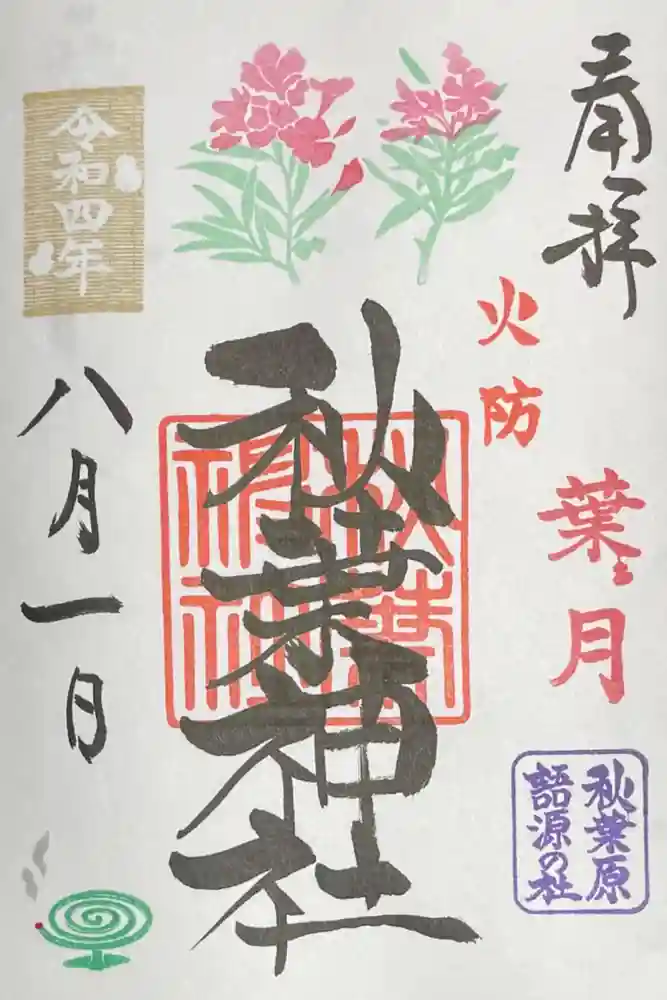 奉拝
火防
葉月
秋葉原
語源の社
秋葉神社
秋葉
神社
令和四年
八月一日